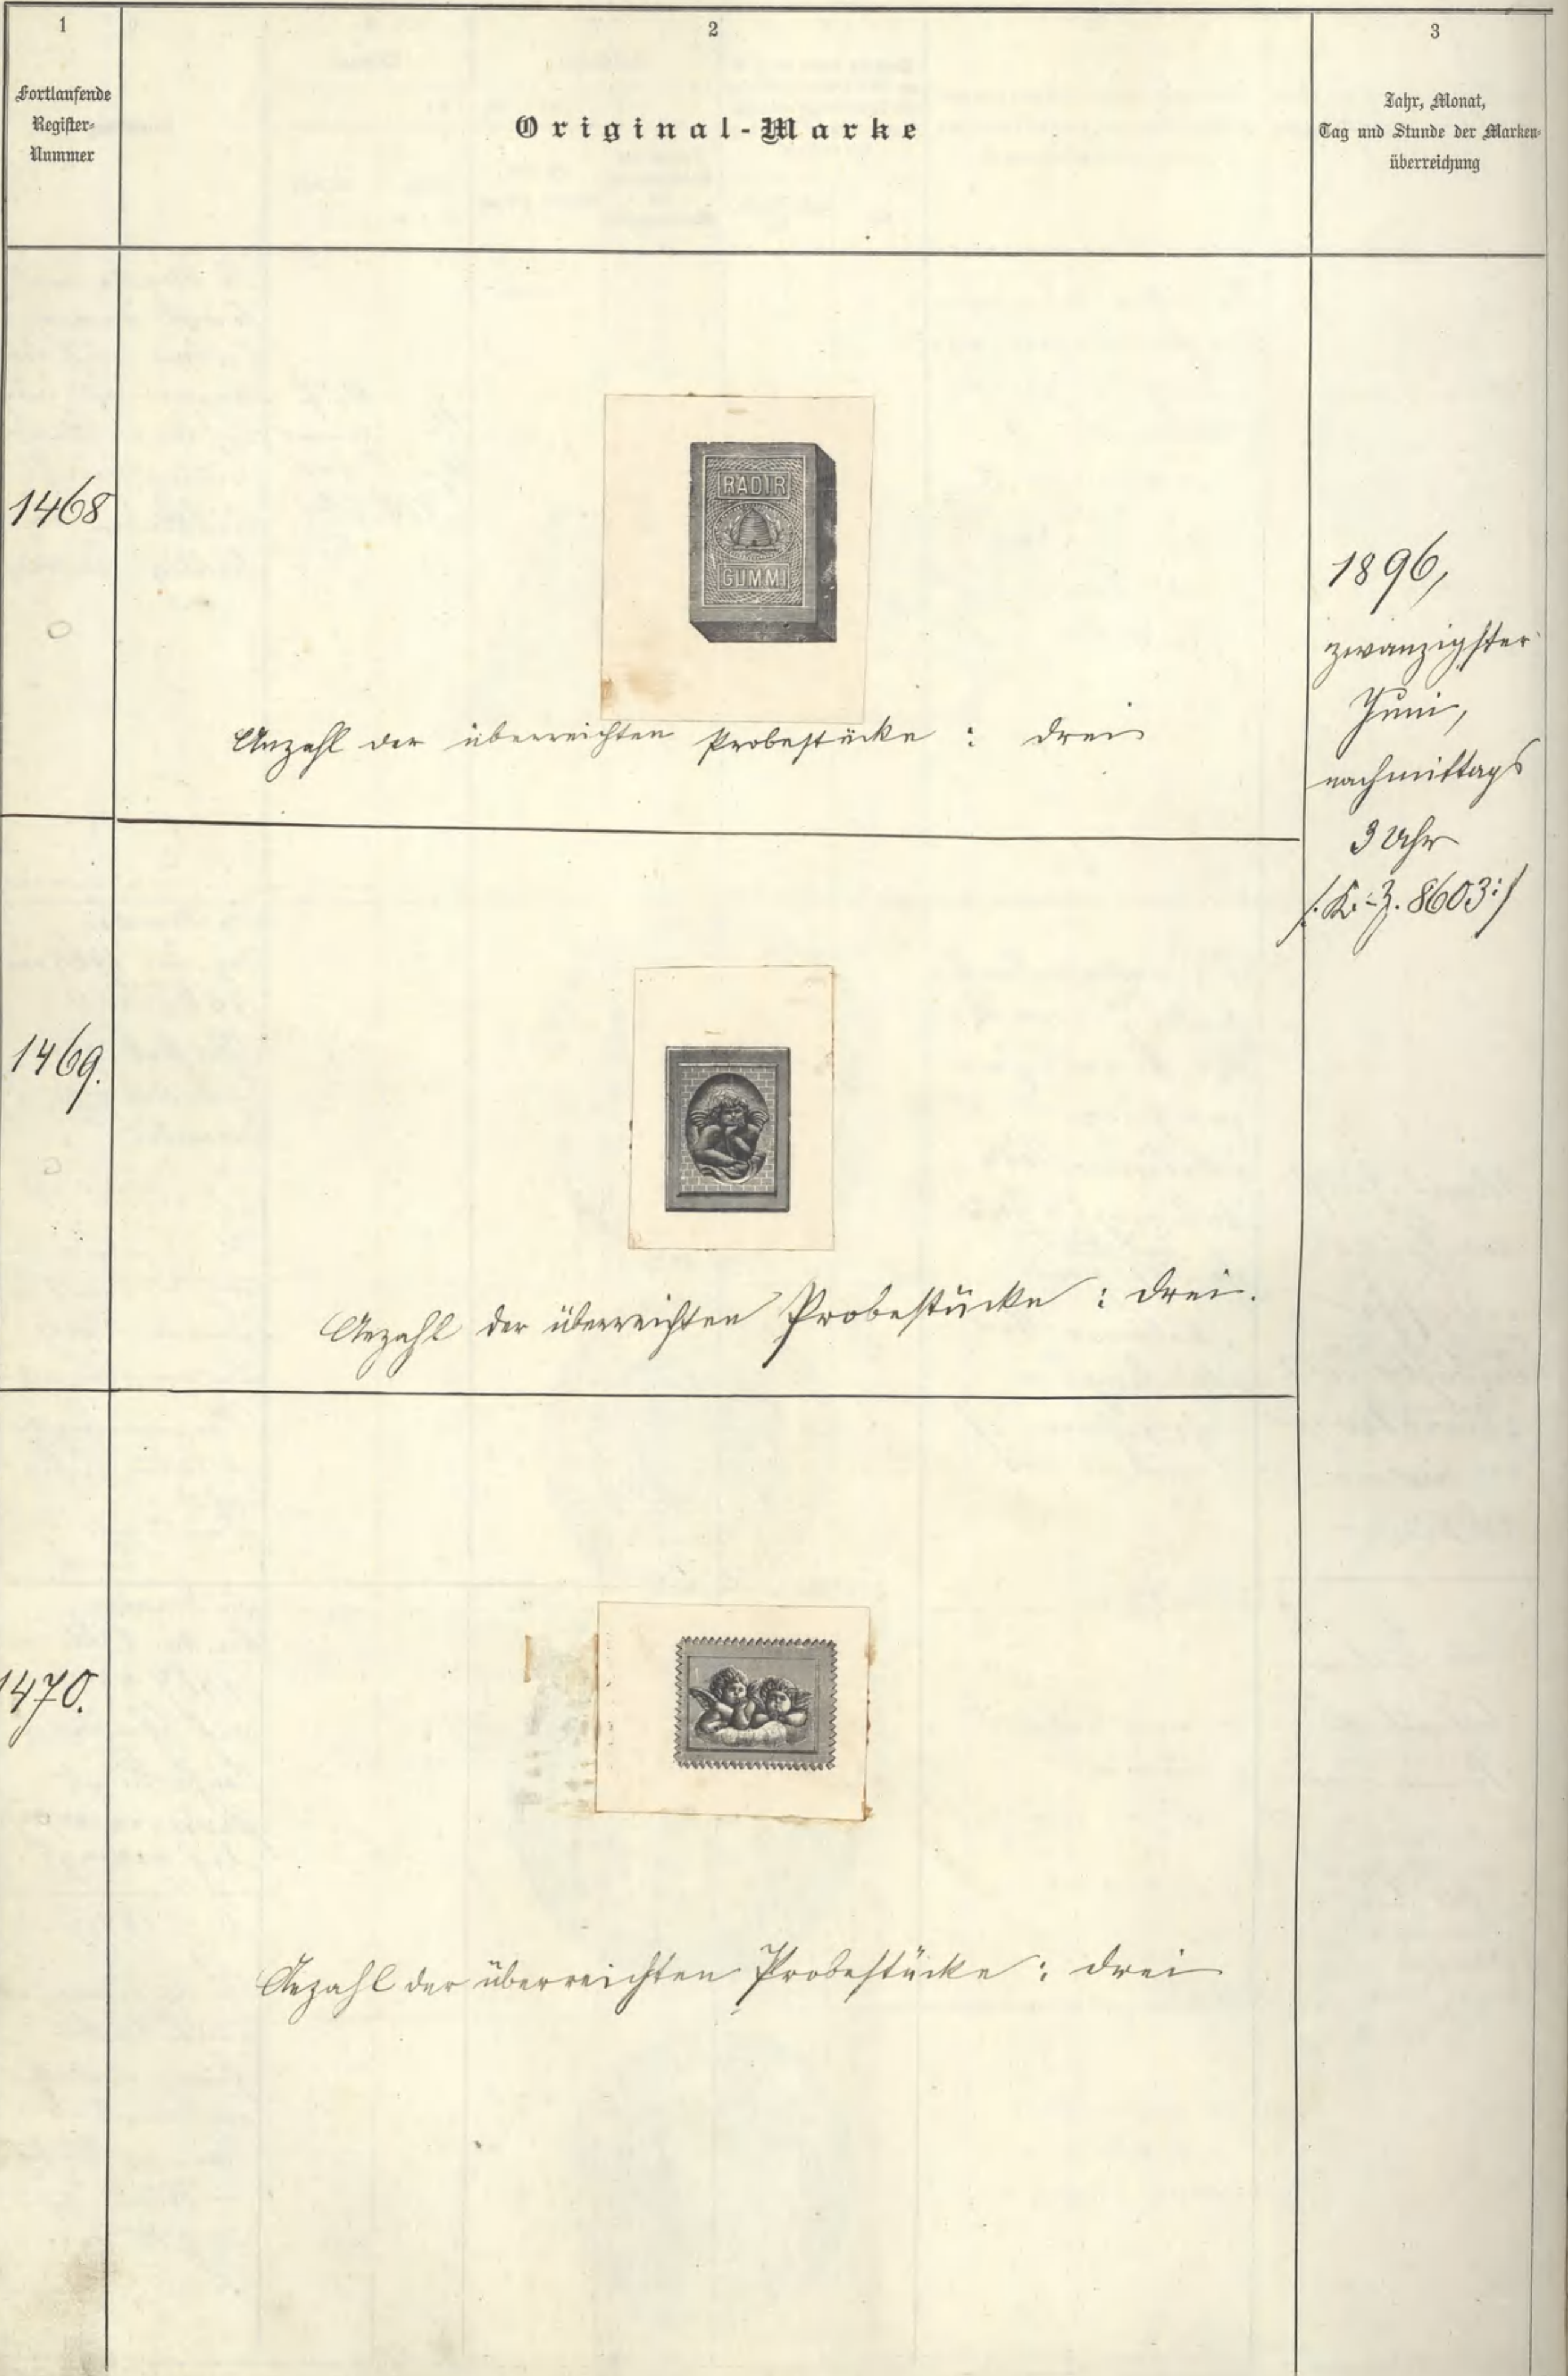 1
Fortlaufende
Register-
Nummer
2
Original-Marke
3
Jahr, Monat,
Tag und Stunde der Marken-
überreichung
1468
RADIR
GUMMI
Anzahl der überreichten Probestücke : drei
1896,
zwanzigster
Juni,
nachmittags
3 Uhr
/: K.-Z. 8603 :/
1469.
Anzahl der überreichten Probestücke : drei.
1470.
Anzahl der überreichten Probestücke : drei